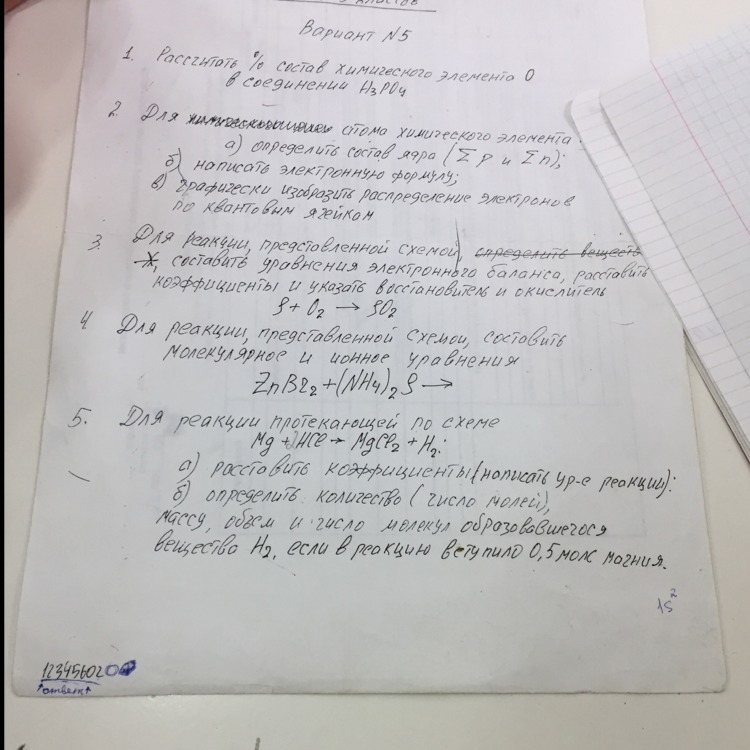 Вариант N5
1. Рассчитать % состав химического элемента О
в соединении H₃PO₄
2. Для атома химического элемента
а) определить состав ядра (Σp и Σn);
б) написать электронную формулу;
в) графически изобразить распределение электронов
по квантовым ячейкам
3. Для реакции, представленной схемой, определить веществ
составить уравнения электронного баланса, расставить
коэффициенты и указать восстановитель и окислитель
S + O₂ → SO₂
4 Для реакции, представленной схемой, составить
молекулярное и ионное уравнения
ZnBr₂ + (NH₄)₂S →
5. Для реакции протекающей по схеме
Mg + HCl → MgCl₂ + H₂:
а) расставить коэффициенты (написать ур-е реакции):
б) определить количество (число молей),
массу, объем и число молекул образовавшегося
вещества H₂, если в реакцию вступило 0,5 моль магния.
1s²
12345602
ответ